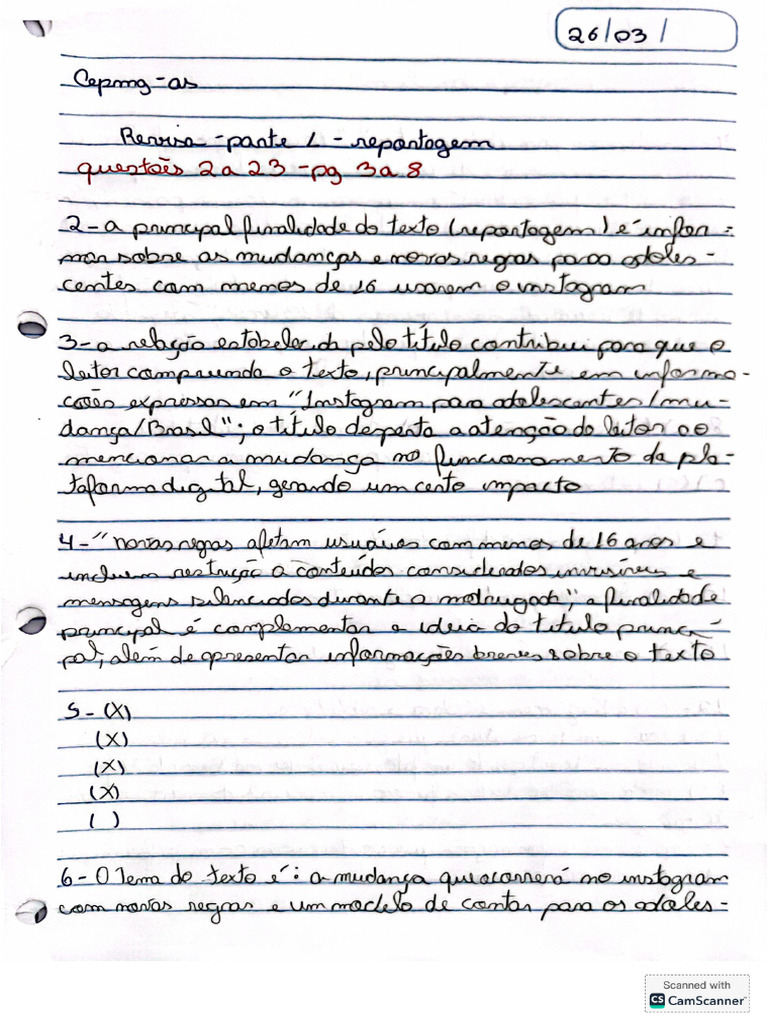 26/03/
Cepmg-as
Revisa-parte 1-reportagem
questões 2 a 23-pg 3 a 8
2-a principal finalidade do texto (reportagem) é infor-
mar sobre as mudanças e novas regras para adoles-
centes com menos de 16 usarem o instagram
3-a relação estabelecida pelo título contribui para que o
leitor compreenda o texto, principalmente em informa-
ções expressas em "Instagram para adolescentes/mu-
dança/Brasil"; o título desperta a atenção do leitor ao
mencionar a mudança no funcionamento da pla-
taforma digital, gerando um certo impacto
4-"novas regras afetam usuários com menos de 16 anos e
incluem restrição a conteúdos considerados
mensagens silenciadas durante a madrugada"; a finalidade
principal é complementar a ideia do título princi-
pal, além de apresentar informações breves sobre o texto
5-(X)
(X)
(X)
(X)
( )
6-O Tema do texto é: a mudança que ocorrerá no instagram
com novas regras e um modelo de contas para os adoles-
Scanned with
CS CamScanner